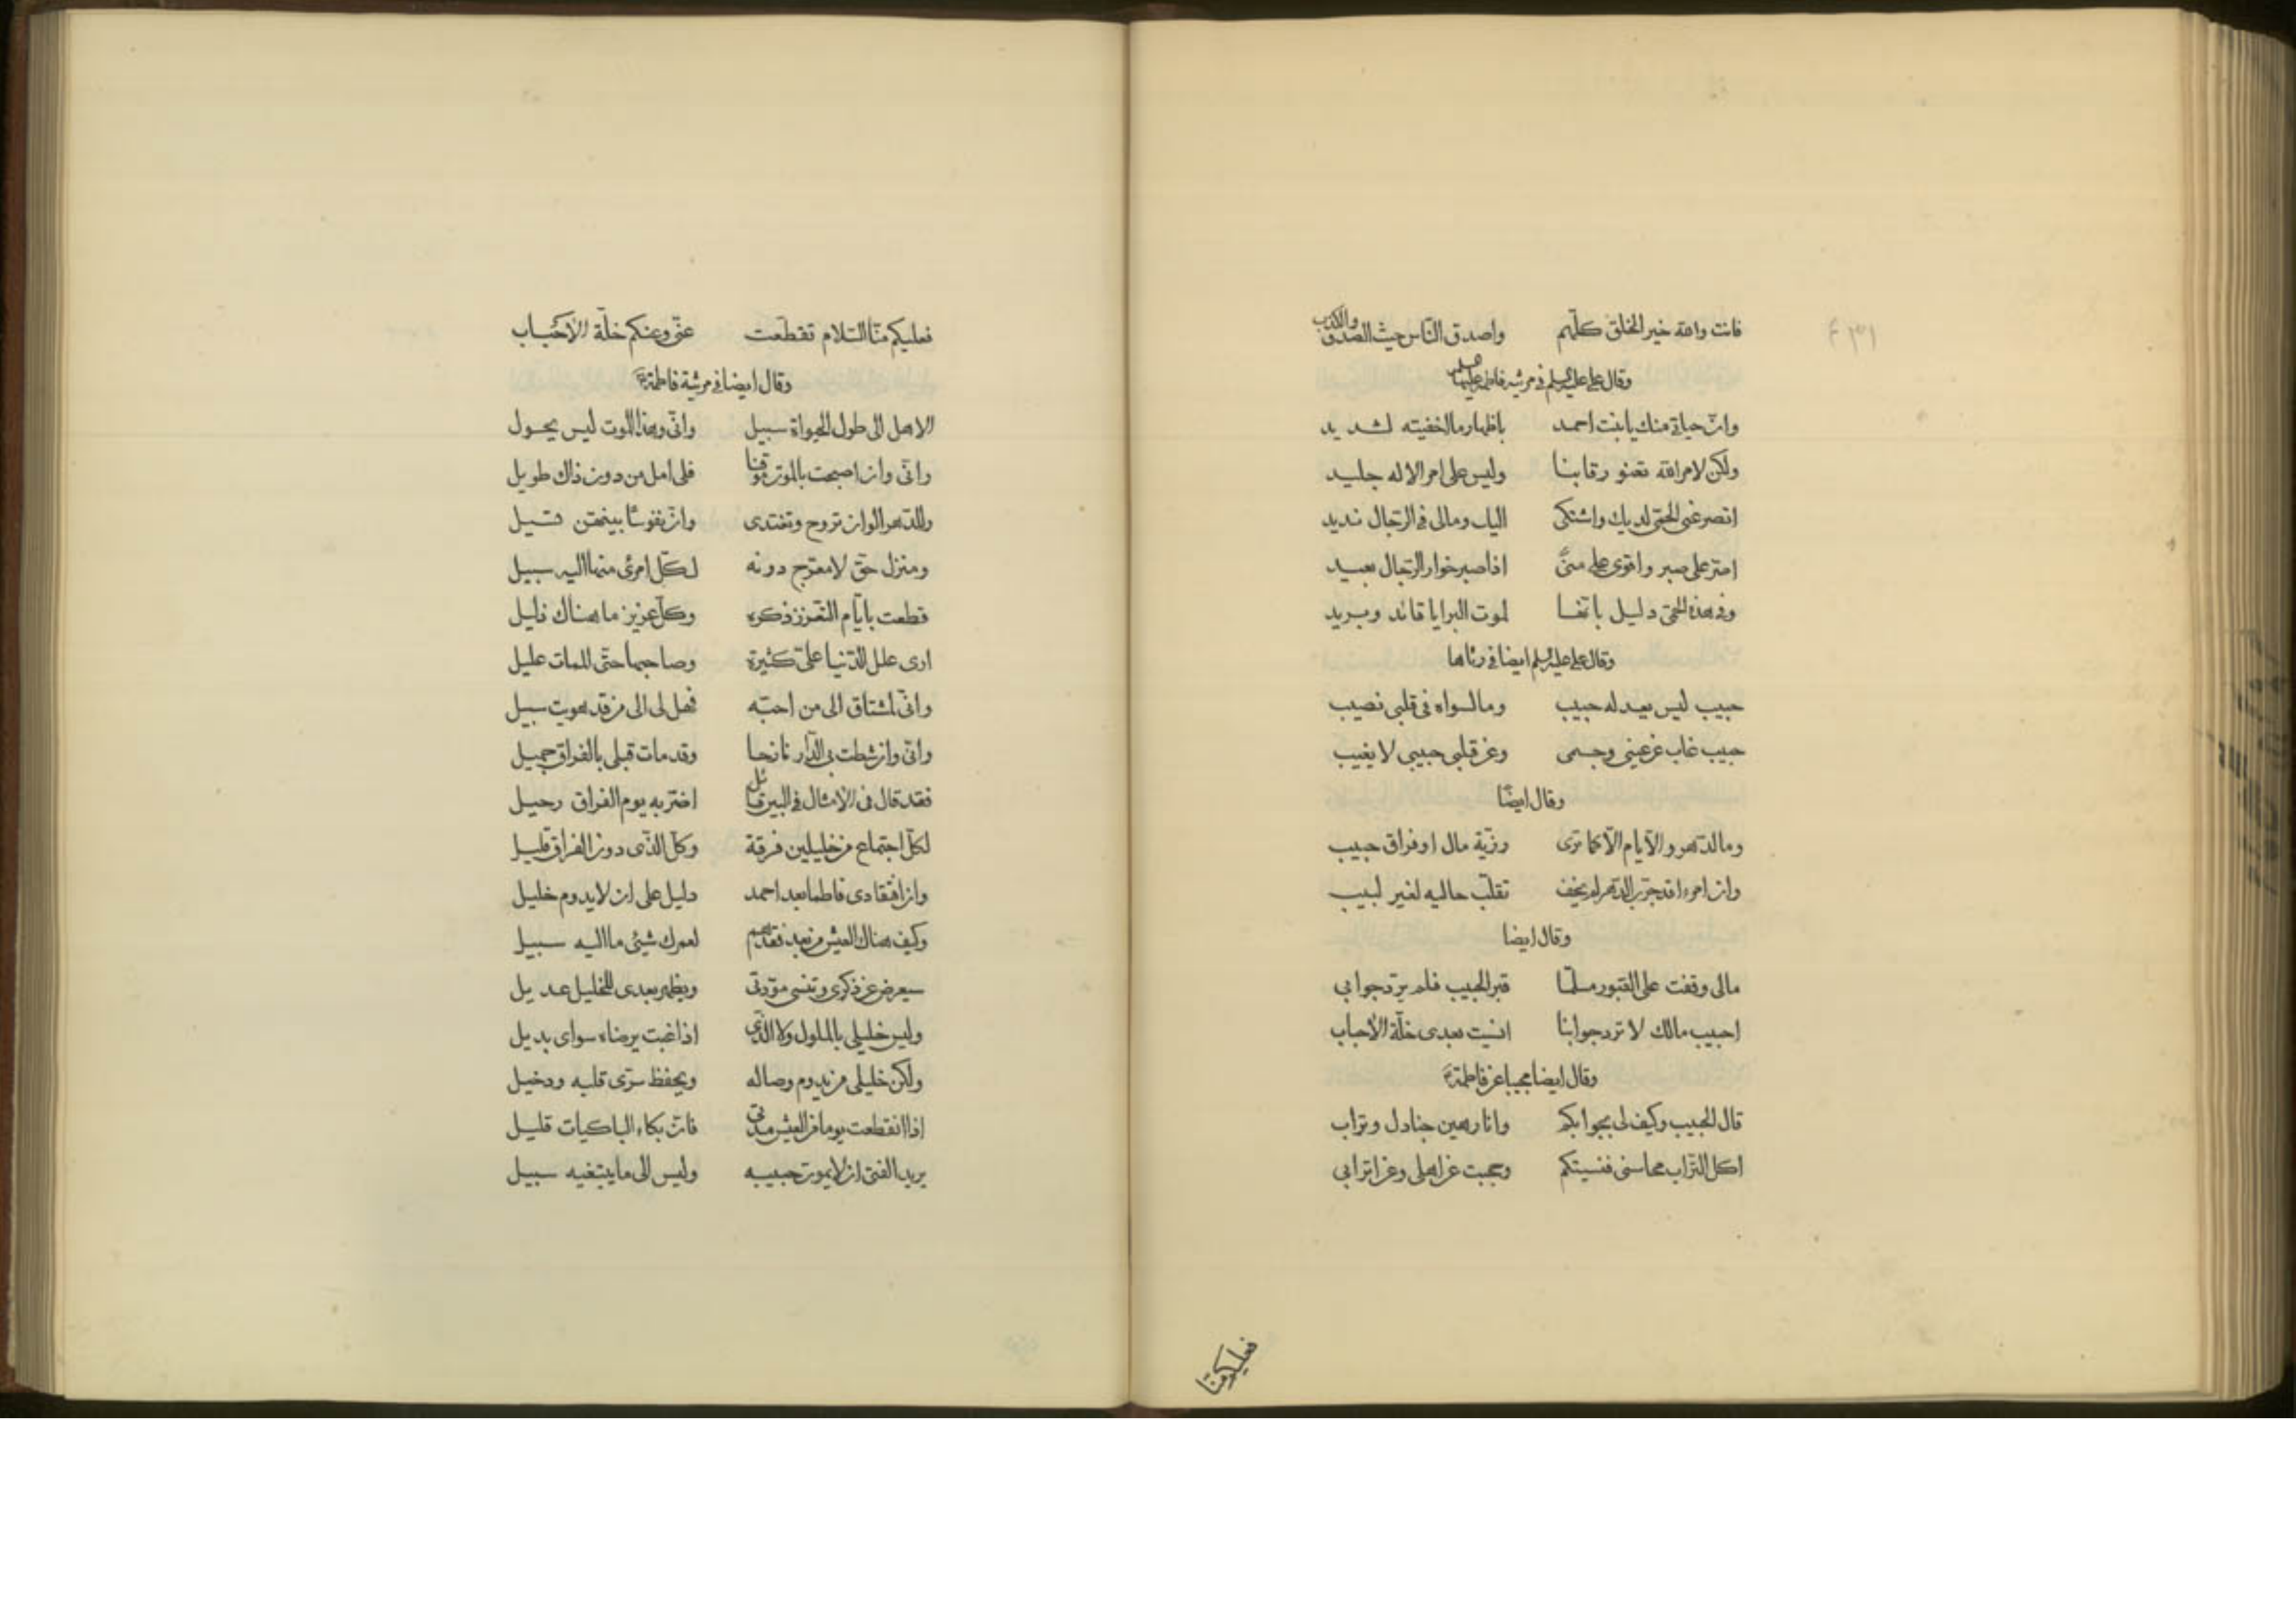 فانت والله خير الخلق كلّهم واصدق النّاس حيث الصدق والكذب
وقال على عليه السلم فى مرثيه فاطمه عليها
وانّ حياتى منك يا بنت احمد باظهار ما اخفيته لشديد
ولكن لامر الله تعنو رقابنا وليس على امر الاله جليد
اتصرعنى الحمّى لديك واشتكى اليك ومالى فى الرّجال نديد
اصرّ على صبر واقوى على منًى اذا صبر خوار الرّجال بعيد
وفى هذه الحمّى دليل بانّها لموت البرايا قائد وبريد
وقال على عليه السلم ايضا فى رثاها
حبيب ليس يعدله حبيب وما لسواه فى قلبى نصيب
حبيب غاب عن عينى وجسمى وعن قلبى حبيبى لا يغيب
وقال ايضًا
وما الدّهر والايّام الّا كما ترى رزيّة مال او فراق حبيب
وان امرءا قد جرّب الدّهر لم يخف تقلّب حاليه لغير لبيب
وقال ايضا
مالى وقفت على القبور مسلّما قبر الحبيب فلم يردّ جوابى
احبيب مالك لا تردّ جوابنا انسيت بعدى خلّة الاحباب
وقال ايضا مجيبا عن فاطمة ع
قال الحبيب وكيف لى بجوابكم وانا رهين جنادل وتراب
اكل التّراب محاسنى فنسيتكم وحجبت عن اهلى وعن اترابى
فعليكم منّا
فعليكم منّا السّلام تقطّعت عنّى وعنكم خلّة الاحباب
وقال ايضا فى مرثية فاطمة ع
الا هل الى طول الحيوة سبيل وانّى وهذا الموت ليس يحول
وانّى وان اصبحت بالموت موقنا فلى امل من دون ذاك طويل
وللدّهر الوان تروح وتغتدى وانّ نفوسًا بينهنّ تسيل
ومنزل حقّ لا معرّج دونه لكلّ امرئ منها اليه سبيل
قطعت بايّام التّعزّز ذكره وكلّ عزيز ما هناك ذليل
ارى علل الدّنيا علىّ كثيرة وصاحبها حتّى الممات عليل
وانّى لمشتاق الى من احبّه فهل لى الى من قد هويت سبيل
وانّى وان شطت بى الدّار نازحا وقد مات قبلى بالفراق جميل
فقد قال فى الامثال فى البين قائل اضرّ به يوم الفراق رحيل
لكلّ اجتماع من خليلين فرقة وكلّ الّذى دون الفراق قليل
وان افتقادى فاطما بعد احمد دليل على ان لا يدوم خليل
وكيف هناك العيش من بعد فقدهم لعمرك شيئ ما اليه سبيل
سيعرض عن ذكرى وتنسى مودّتى ويظهر بعدى للخليل عديل
وليس خليلى بالملول ولا الّذى اذا غبت يرضاه سواى بديل
ولكن خليلى من يدوم وصاله ويحفظ سرّى قلبه ودخيل
اذا انقطعت يوما من العيش مدّتى فانّ بكاء الباكيات قليل
يريد الفتى ان لا يموت حبيبه وليس الى ما يبتغيه سبيل